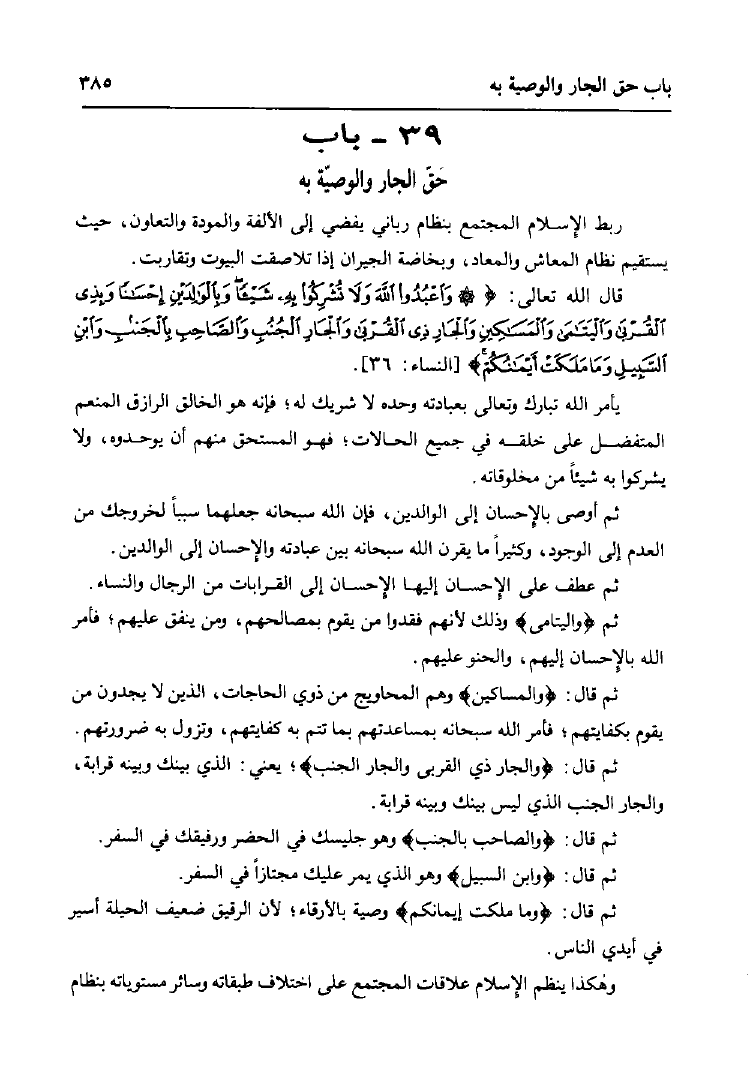 باب حق الجار والوصية به ٣٨٥
٣٩ - باب
حَقّ الجار والوصيّة به
ربط الإسلام المجتمع بنظام رباني يفضي إلى الألفة والمودة والتعاون، حيث
يستقيم نظام المعاش والمعاد، وبخاصة الجيران إذا تلاصقت البيوت وتقاربت.
قال الله تعالى: ﴿ ۞ وَاعْبُدُوا اللَّهَ وَلَا تُشْرِكُوا بِهِ شَيْئًا وَبِالْوَالِدَيْنِ إِحْسَانًا وَبِذِي
الْقُرْبَىٰ وَالْيَتَامَىٰ وَالْمَسَاكِينِ وَالْجَارِ ذِي الْقُرْبَىٰ وَالْجَارِ الْجُنُبِ وَالصَّاحِبِ بِالْجَنْبِ وَابْنِ
السَّبِيلِ وَمَا مَلَكَتْ أَيْمَانُكُمْ ۚ﴾ [النساء: ٣٦].
يأمر الله تبارك وتعالى بعبادته وحده لا شريك له؛ فإنه هو الخالق الرازق المنعم
المتفضل على خلقه في جميع الحالات؛ فهو المستحق منهم أن يوحدوه، ولا
يشركوا به شيئاً من مخلوقاته.
ثم أوصى بالإحسان إلى الوالدين، فإن الله سبحانه جعلهما سبباً لخروجك من
العدم إلى الوجود، وكثيراً ما يقرن الله سبحانه بين عبادته والإحسان إلى الوالدين.
ثم عطف على الإحسان إليها الإحسان إلى القرابات من الرجال والنساء.
ثم ﴿واليتامى﴾ وذلك لأنهم فقدوا من يقوم بمصالحهم، ومن ينفق عليهم؛ فأمر
الله بالإحسان إليهم، والحنو عليهم.
ثم قال: ﴿والمساكين﴾ وهم المحاويج من ذوي الحاجات، الذين لا يجدون من
يقوم بكفايتهم؛ فأمر الله سبحانه بمساعدتهم بما تتم به كفايتهم، وتزول به ضرورتهم.
ثم قال: ﴿والجار ذي القربى والجار الجنب﴾؛ يعني: الذي بينك وبينه قرابة،
والجار الجنب الذي ليس بينك وبينه قرابة.
ثم قال: ﴿والصاحب بالجنب﴾ وهو جليسك في الحضر ورفيقك في السفر.
ثم قال: ﴿وابن السبيل﴾ وهو الذي يمر عليك مجتازاً في السفر.
ثم قال: ﴿وما ملكت إيمانكم﴾ وصية بالأرقاء؛ لأن الرقيق ضعيف الحيلة أسير
في أيدي الناس.
وهٰكذا ينظم الإسلام علاقات المجتمع على اختلاف طبقاته وسائر مستوياته بنظام